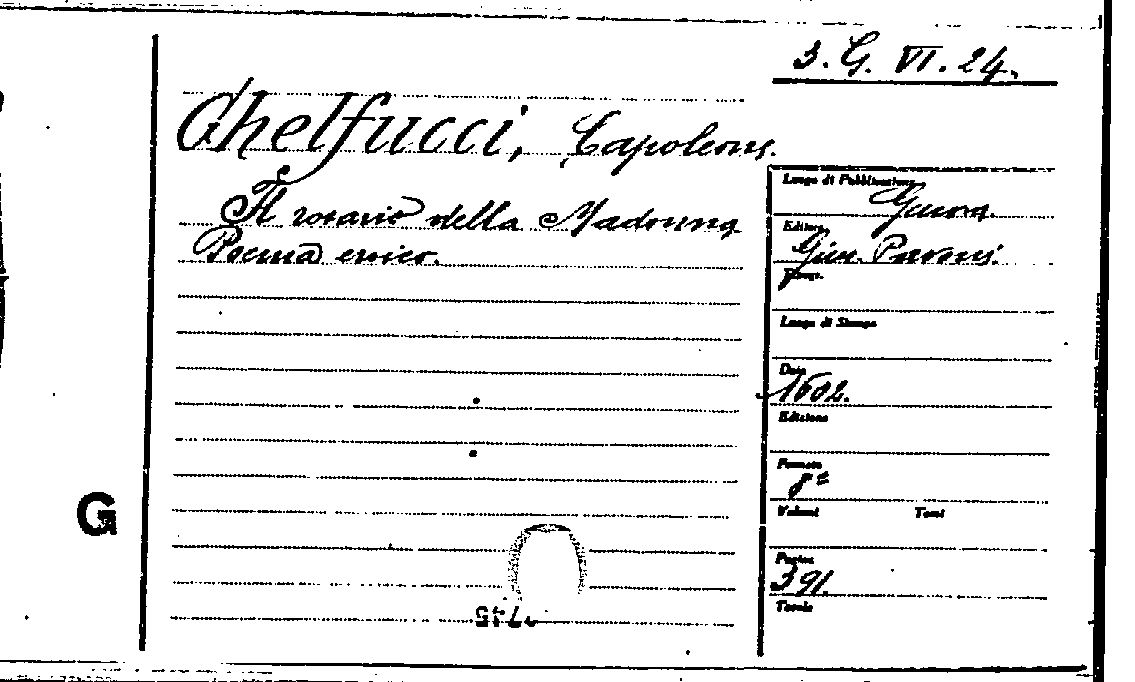 3. G. VI. 24.
Ghelfucci, Capoleone.
Il rosario della Madonna
Poema eroico.
Luogo di Pubblicazione
Genova
Editore
Gius. Pavoni.
Luogo di Stampa
Data
1602.
Edizione
Formato
8º
Volumi Tomi
Pagine
391.
Tavole
G